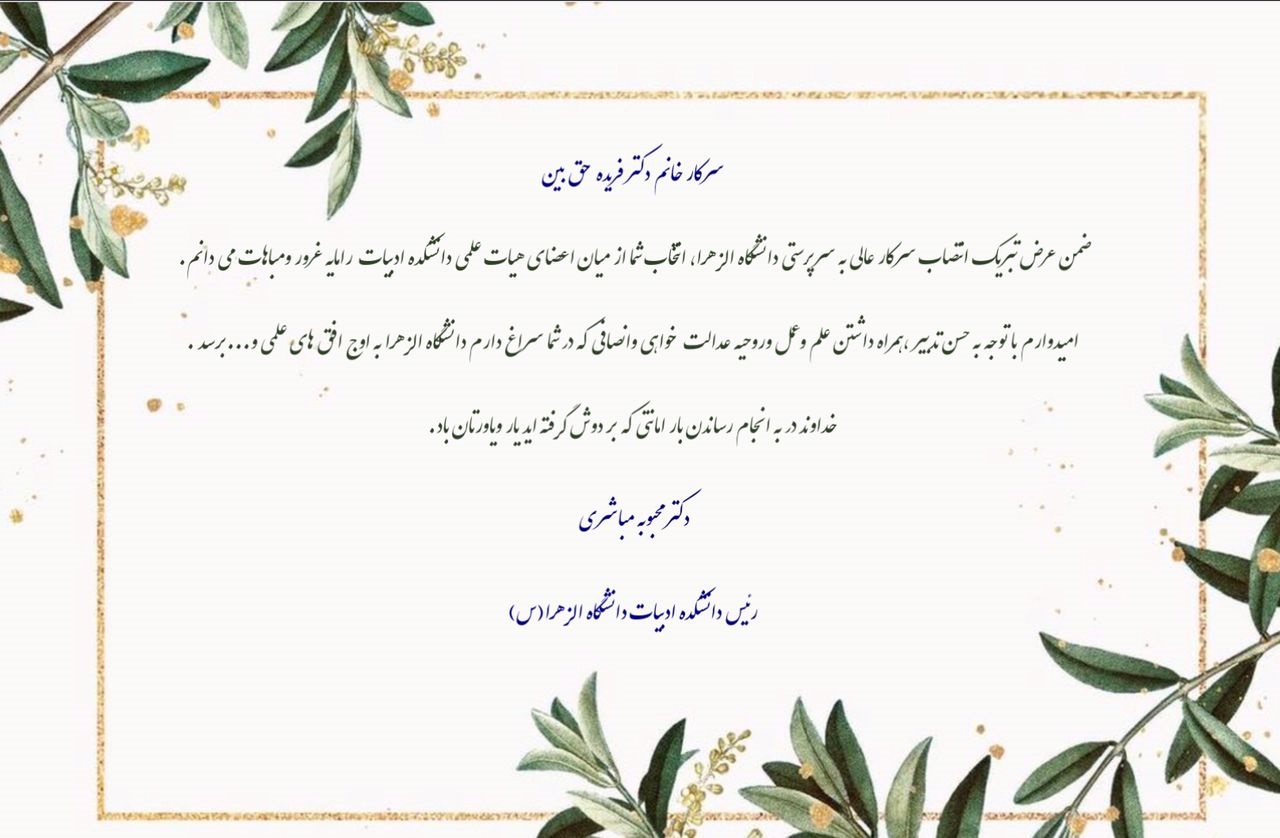 سرکار خانم دکتر فریده حق بین
ضمن عرض تبریک انتصاب سرکار عالی به سرپرستی دانشگاه الزهرا، انتخاب شما از میان اعضای هیات علمی دانشکده ادبیات را مایه غرور ومباهات می دانم .
امیدوارم با توجه به حسن تدبیر ،همراه داشتن علم و عمل وروحیه عدالت خواهی وانصافی که در شما سراغ دارم دانشگاه الزهرا به اوج افق های علمی و... برسد .
خداوند در به انجام رساندن بار امانتی که بر دوش گرفته اید یار ویاورتان باد .
دکتر محبوبه مباشری
رئیس دانشکده ادبیات دانشگاه الزهرا (س)